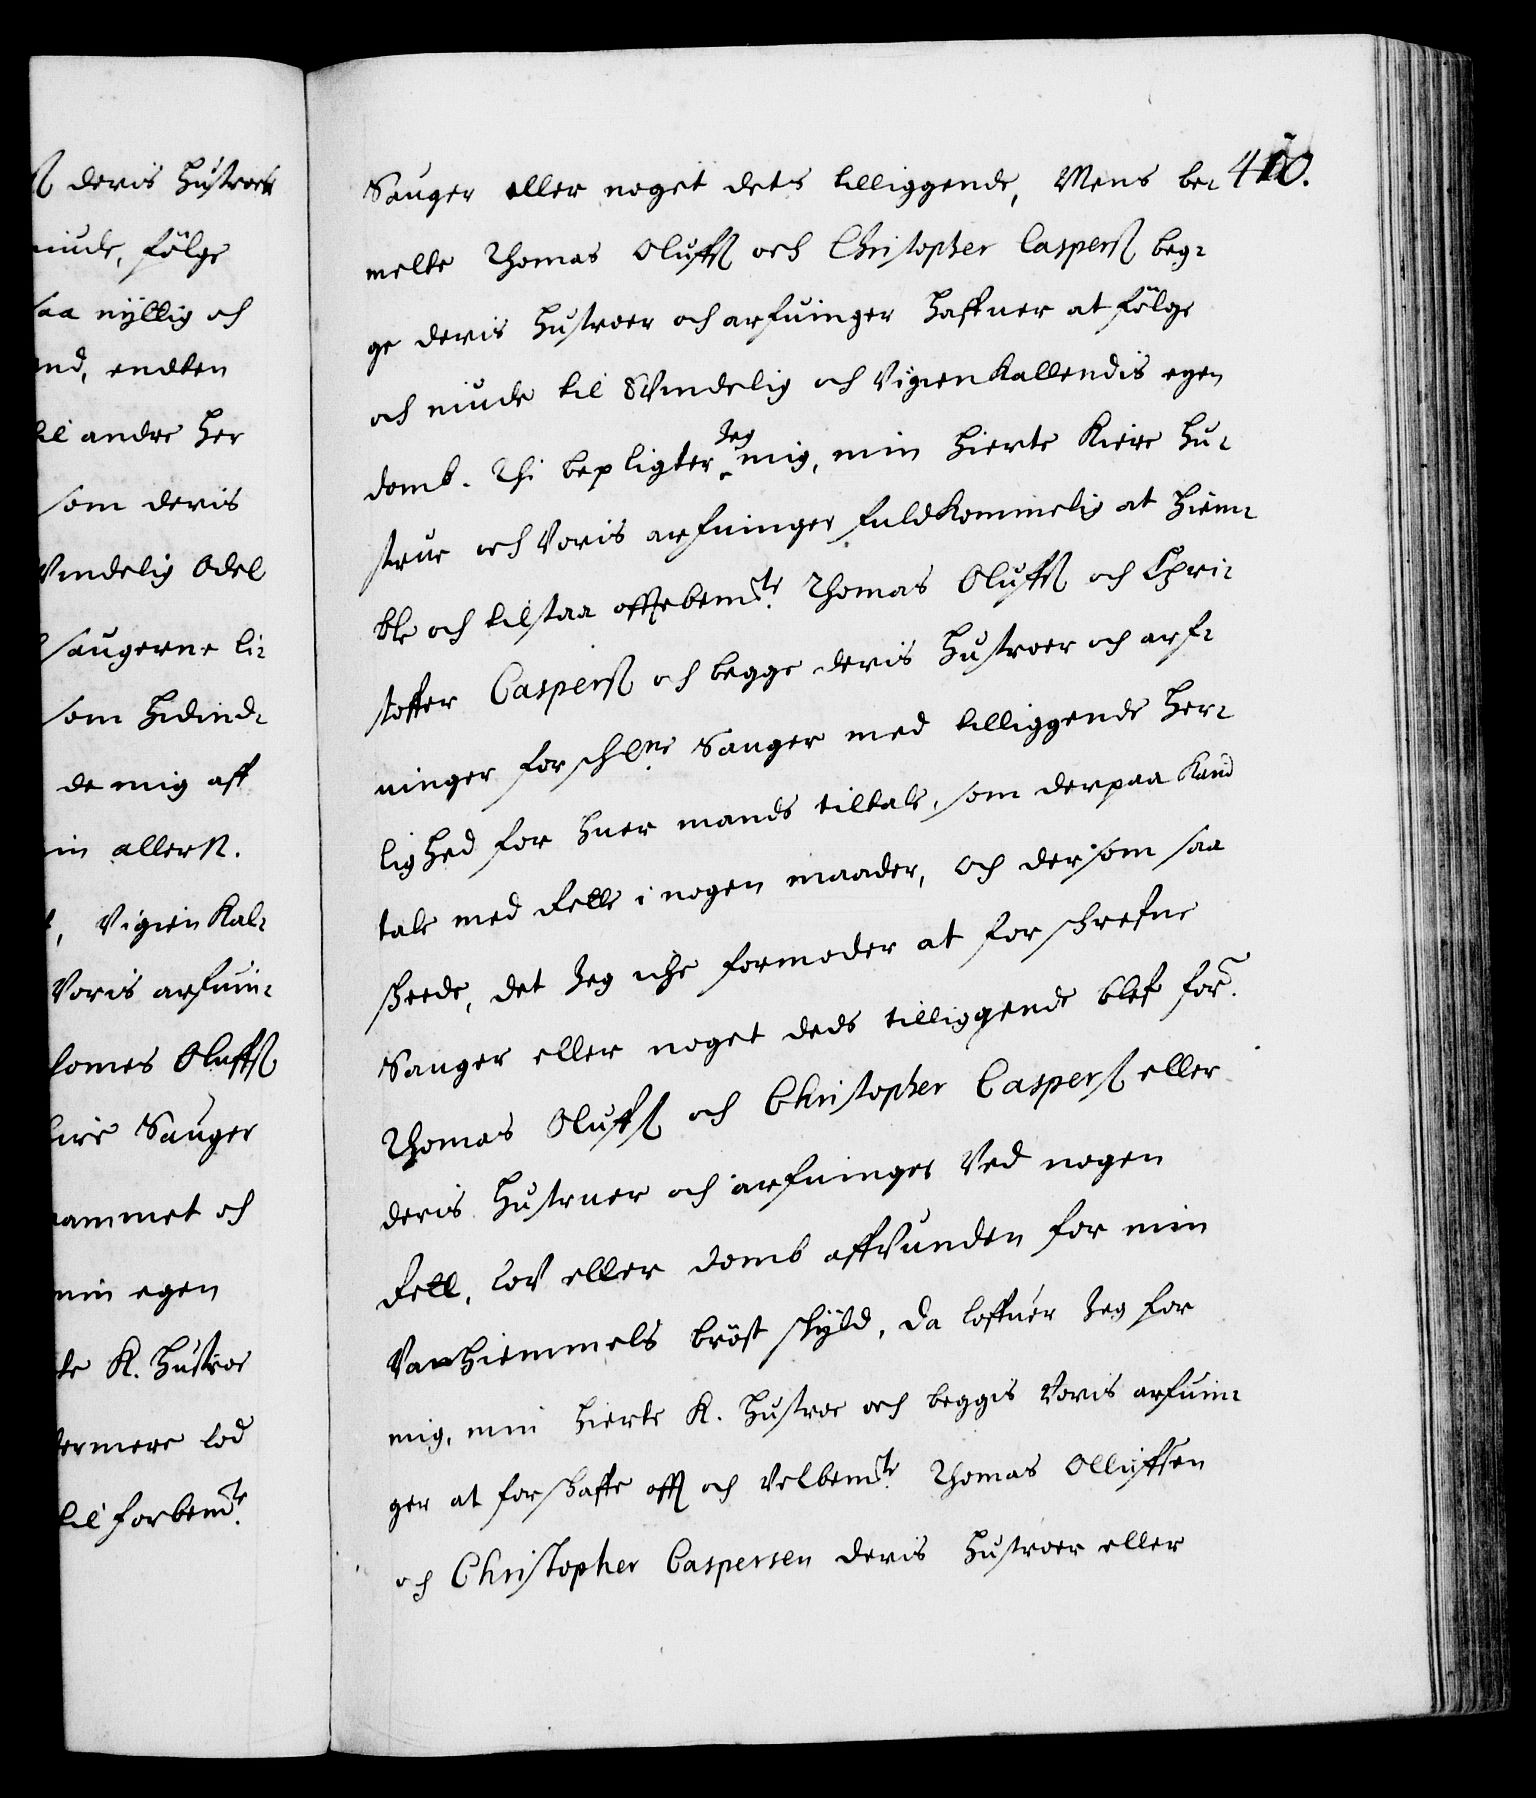 ß deris Hustroer
niude, følge
saa nyttig och
end, endten
til andre her
som deris
Vindelig Odel
saugerne li-
som hidind-
de mig aff
min allerk.
Vigienkal-
Voris arfuin-
homes Olufß
Sauger
sammet och
min egen
te K. Hustroe
ermere lod
til forbemte.
410.
Sauger eller noget dets tilliggende, Mens be-
melte Thomas Olufß och Christopher Casperß beg-
ge deris Hustroer och arfuinger haffuer at følge
och niude til Vindelig och Vigienkallendis egen
domb. Thi bepligter Jeg mig, min hierte Kiere Hu-
strue och Voris arfuinger fuldkommelig at hiem-
ble och tilstaa offtebemte. Thomas Olufß och Chri-
stoffer Casperß och begge deris Hustroer och arf-
uinger forschrne Sauger med tilliggende her-
lighed for huer mands tiltale, som derpaa kand
tale med Rette i nogen maader, och dersom saa
skeede, det Jeg iche formoder at forschrefne
Sauger eller noget deds tilliggende blef for:
Thomas Olufß och Christopher Casperß eller
deris Hustruer och arfuinger Ved nogen
Rett, lov eller domb affVunden for min
Vanhiemmels brøst skyld, da loffuer Jeg for
mig, min hierte K. Hustroe och beggis Voris arfuin-
ger at forskaffe offß och Velbemte. Thomas Olluffsen
och Christopher Caspersen deris Hustroer eller